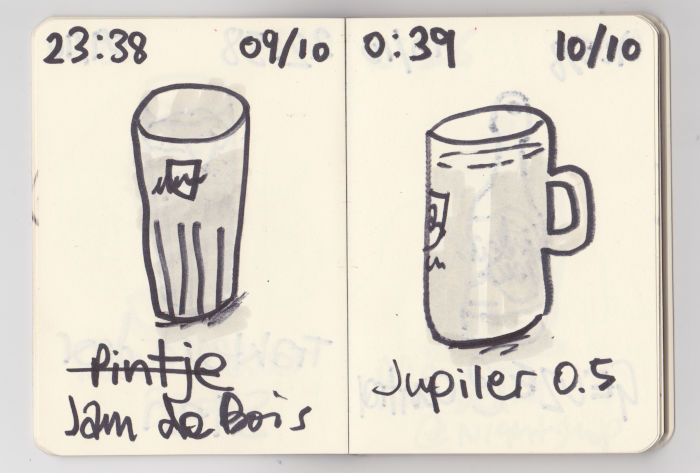 23:38 09/10
Pintje
Jam da Bois
0:39 10/10
Jupiler 0.5